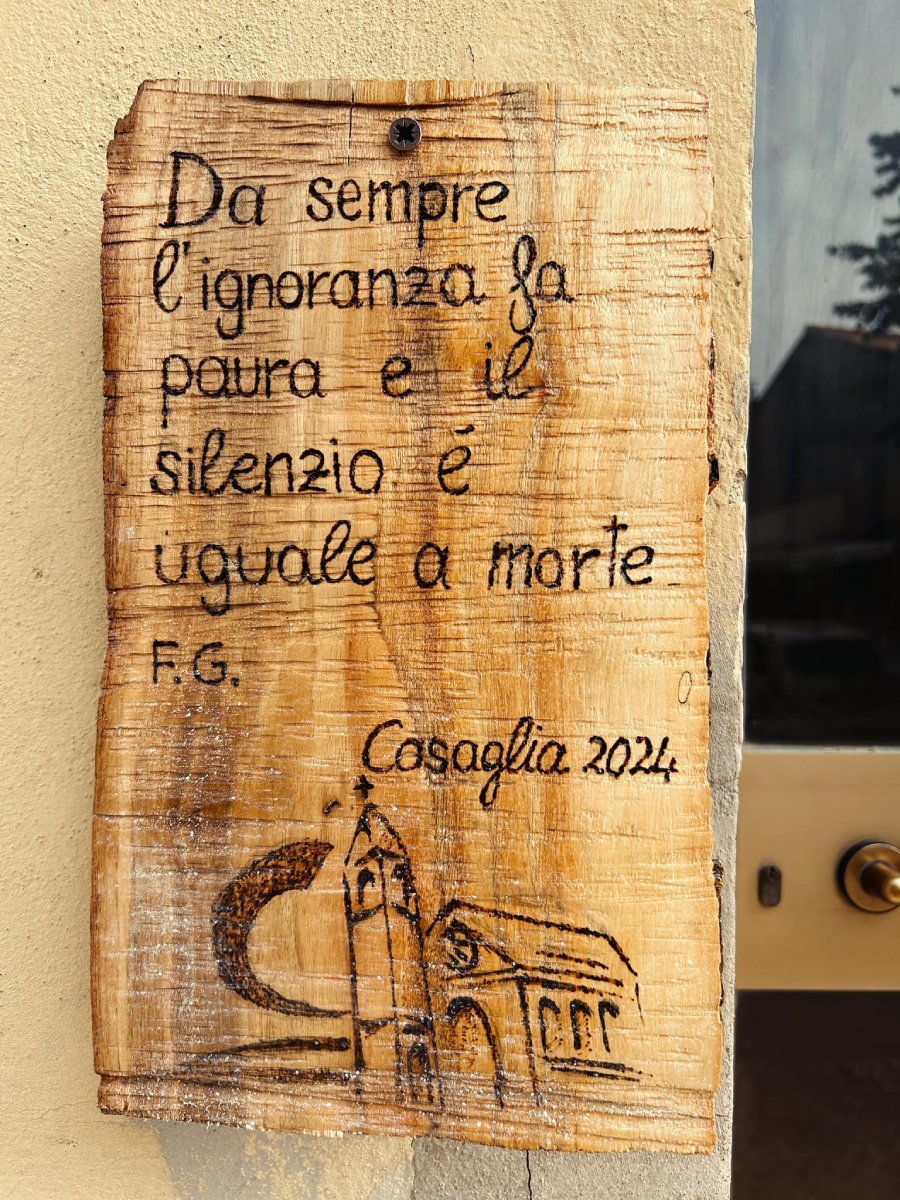 Da sempre
l'ignoranza fa
paura e il
silenzio é
uguale a morte
F.G.
Casaglia 2024